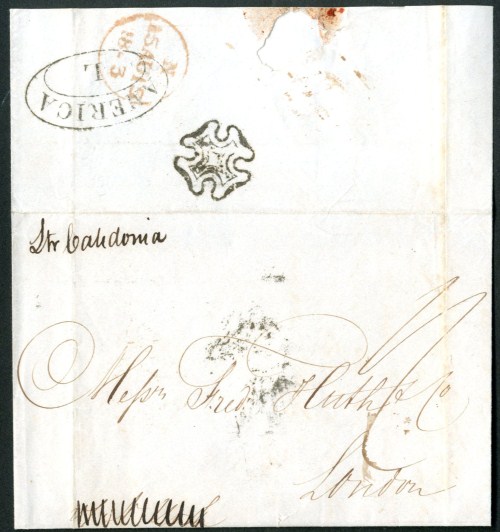 AMERICA
L
Str Caledonia
Messrs Fredk Huth & Co
London